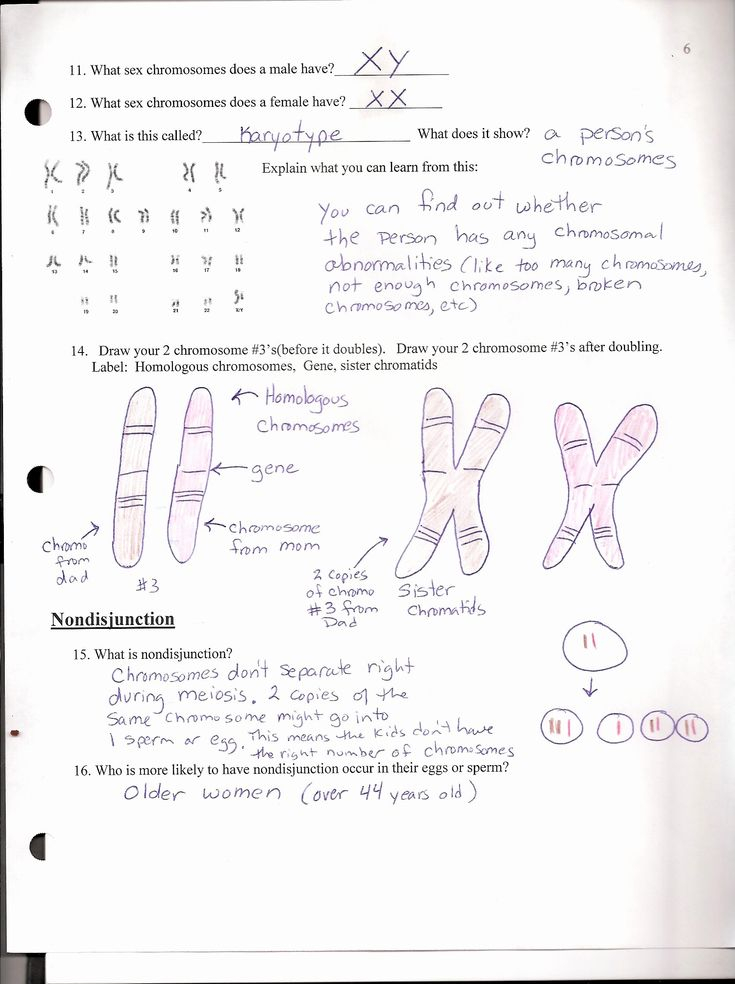 6
11. What sex chromosomes does a male have? XY
12. What sex chromosomes does a female have? XX
13. What is this called? Karyotype What does it show? a person's
chromosomes
Explain what you can learn from this:
1 2 3 4 5
6 7 8 9 10 11 12
13 14 15 16 17 18
19 20 21 22 X/Y
You can find out whether
the person has any chromosomal
abnormalities (like too many chromosomes,
not enough chromosomes, broken
chromosomes, etc)
14. Draw your 2 chromosome #3's(before it doubles). Draw your 2 chromosome #3's after doubling.
Label: Homologous chromosomes, Gene, sister chromatids
Homologous
Chromosomes
gene
chromosome
from mom
chromo
from
dad
#3
2 copies
of chromo
#3 from
Dad
Sister
Chromatids
Nondisjunction
15. What is nondisjunction?
Chromosomes don't separate right
during meiosis. 2 copies of the
same chromosome might go into
1 sperm or egg. This means the kids don't have
the right number of chromosomes
16. Who is more likely to have nondisjunction occur in their eggs or sperm?
Older women (over 44 years old)